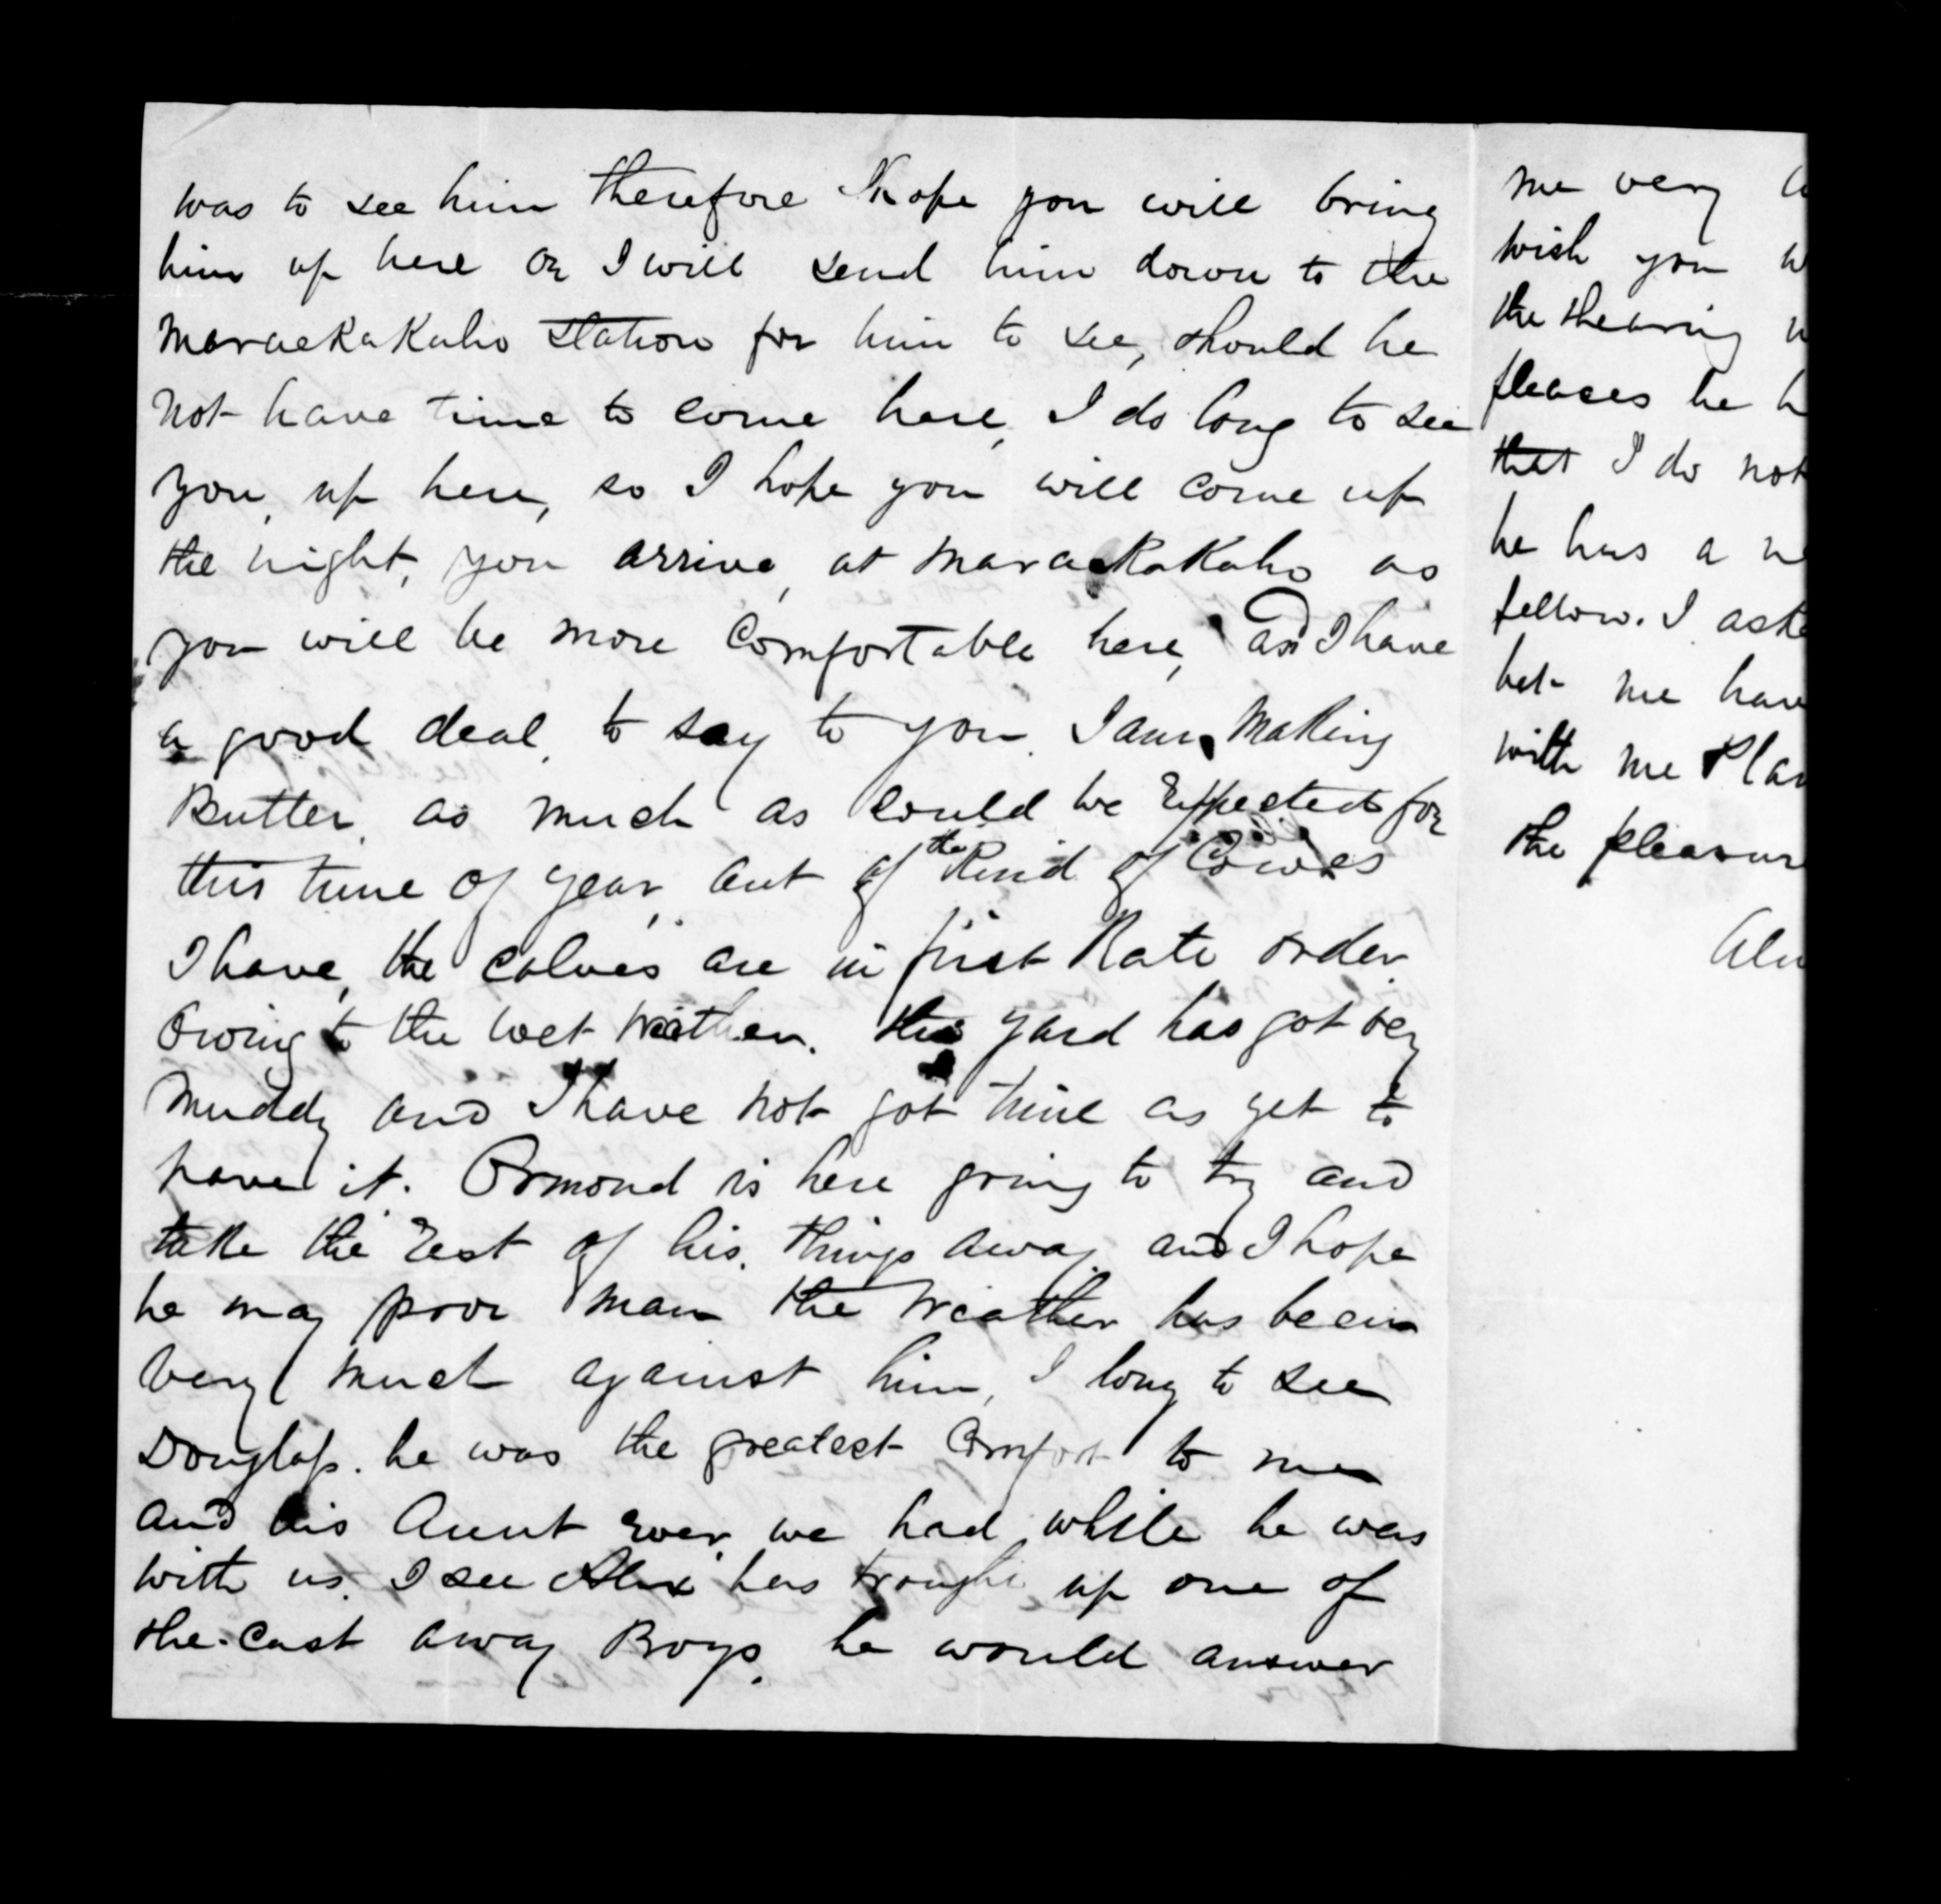 was to see him therefore I hope you will bring
him up here or I will send him down to the
Maraekakaho station for him to see, should he
not have time to come here, I do long to see
you, up here, so I hope you will come up
the night, you arrive, at Maraekakaho as
you will be more Comfortable here, and I have
a good deal, to say to you. I am making
Butter, as much as could be Expected for
this time of year, out of the Kind of Cowes
I have, the calves are in first Rate order
Owing to the wet weather. the yard has got very
muddy and I have not got time as yet to
pave it. Ormond is here going to try and
take the Rest of his, things away and I hope
he may poor man the weather has been
very much against him, I long to see
Douglass. he was the greatest Comfort to me
and his Aunt Ever, we had while he was
with us. I see Alex has brought up one of
the cast away Boys. he would answer
me very
wish you
the shearing
pleases he
that I do not
he has a
fellow. I
let me
with me
the